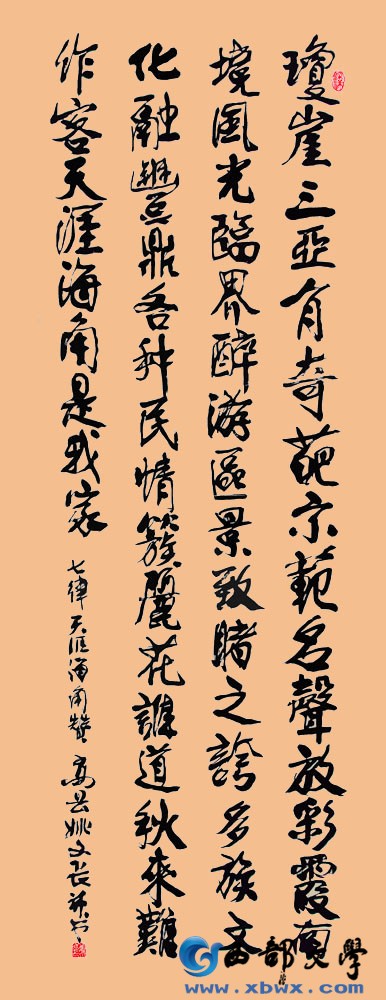 瓊崖三亞有奇葩示範名聲放彩霞南
境風光臨界醉游區景致睹之誇多族文
化融豐鼎各种民情簇麗花誰道秋來難
作客天涯海角是我家
七律天涯海角贊 高县姚文长并书
西部文學
www.xbwx.com